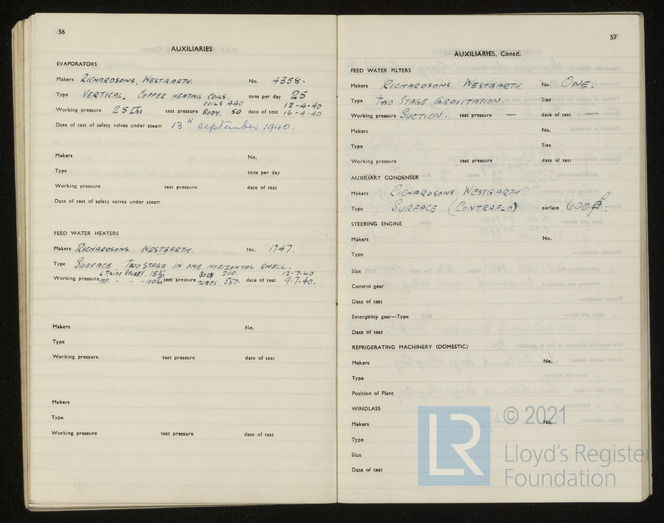 56
AUXILIARIES
EVAPORATORS
Makers RICHARDSONS, WESTGARTH. No. 4358.
Type VERTICAL, COPPER HEATING COILS. tons per day 25
COILS 440 12-4-40
Working pressure 25 lbs test pressure BODY. 50 date of test 16-4-40
Date of test of safety valves under steam 13th September 1940.
Makers No.
Type tons per day
Working pressure test pressure date of test
Date of test of safety valves under steam
FEED WATER HEATERS
Makers RICHARDSONS WESTGARTH. No. 1747.
Type SURFACE TWO STAGE IN ONE HORIZONTAL SHELL.
BODY 12-7-40
Working pressure test pressure TUBES 550. date of test 9.7.40.
Makers No.
Type
Working pressure test pressure date of test
Makers
Type
Working pressure test pressure date of test
57
AUXILIARIES, Contd.
FEED WATER FILTERS
Makers RICHARDSONS WESTGARTH. No. ONE.
Type TWO STAGE GRAVITATION. Size
Working pressure SUCTION. test pressure — date of test —
Makers No.
Type Size
Working pressure test pressure date of test
AUXILIARY CONDENSER
Makers RICHARDSONS WESTGARTH.
Type SURFACE (CONTRAFLO) surface 600
STEERING ENGINE
Makers No.
Type
Size
Control gear
Date of test
Emergency gear—Type
Date of test
REFRIGERATING MACHINERY (DOMESTIC)
Makers No.
Type
Position of Plant
WINDLASS
Makers No.
Type
Size
Date of test
LR
© 2021
Lloyd's Register
Foundation